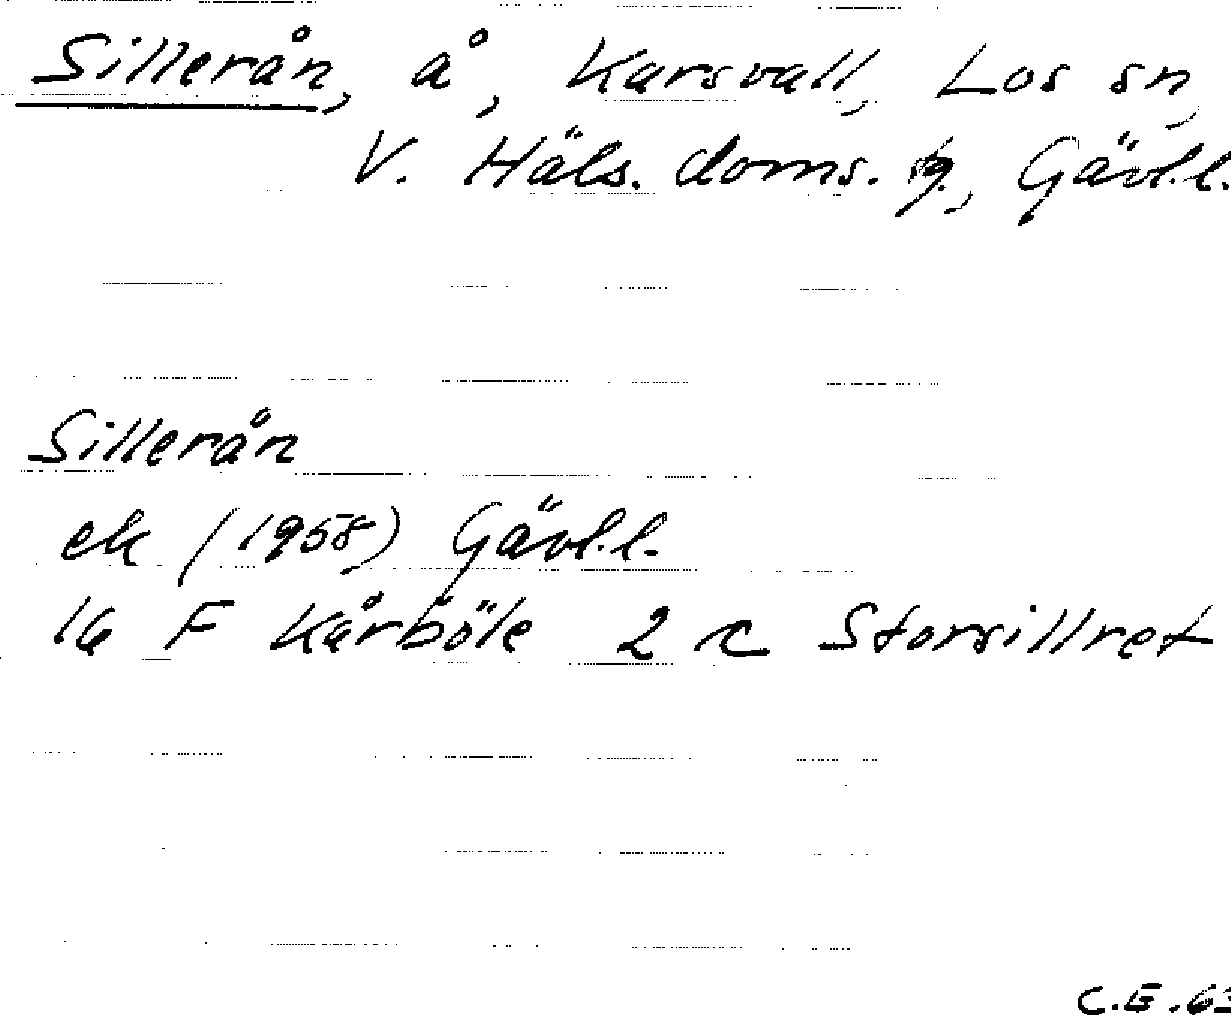 Sillerån, å, Karsvall, Los sn,
V. Häls. doms. g., Gävl.l.
Sillerån
ek (1958) Gävl.l.
16 F Kårböle 2 c Storsillret
C.E. 63